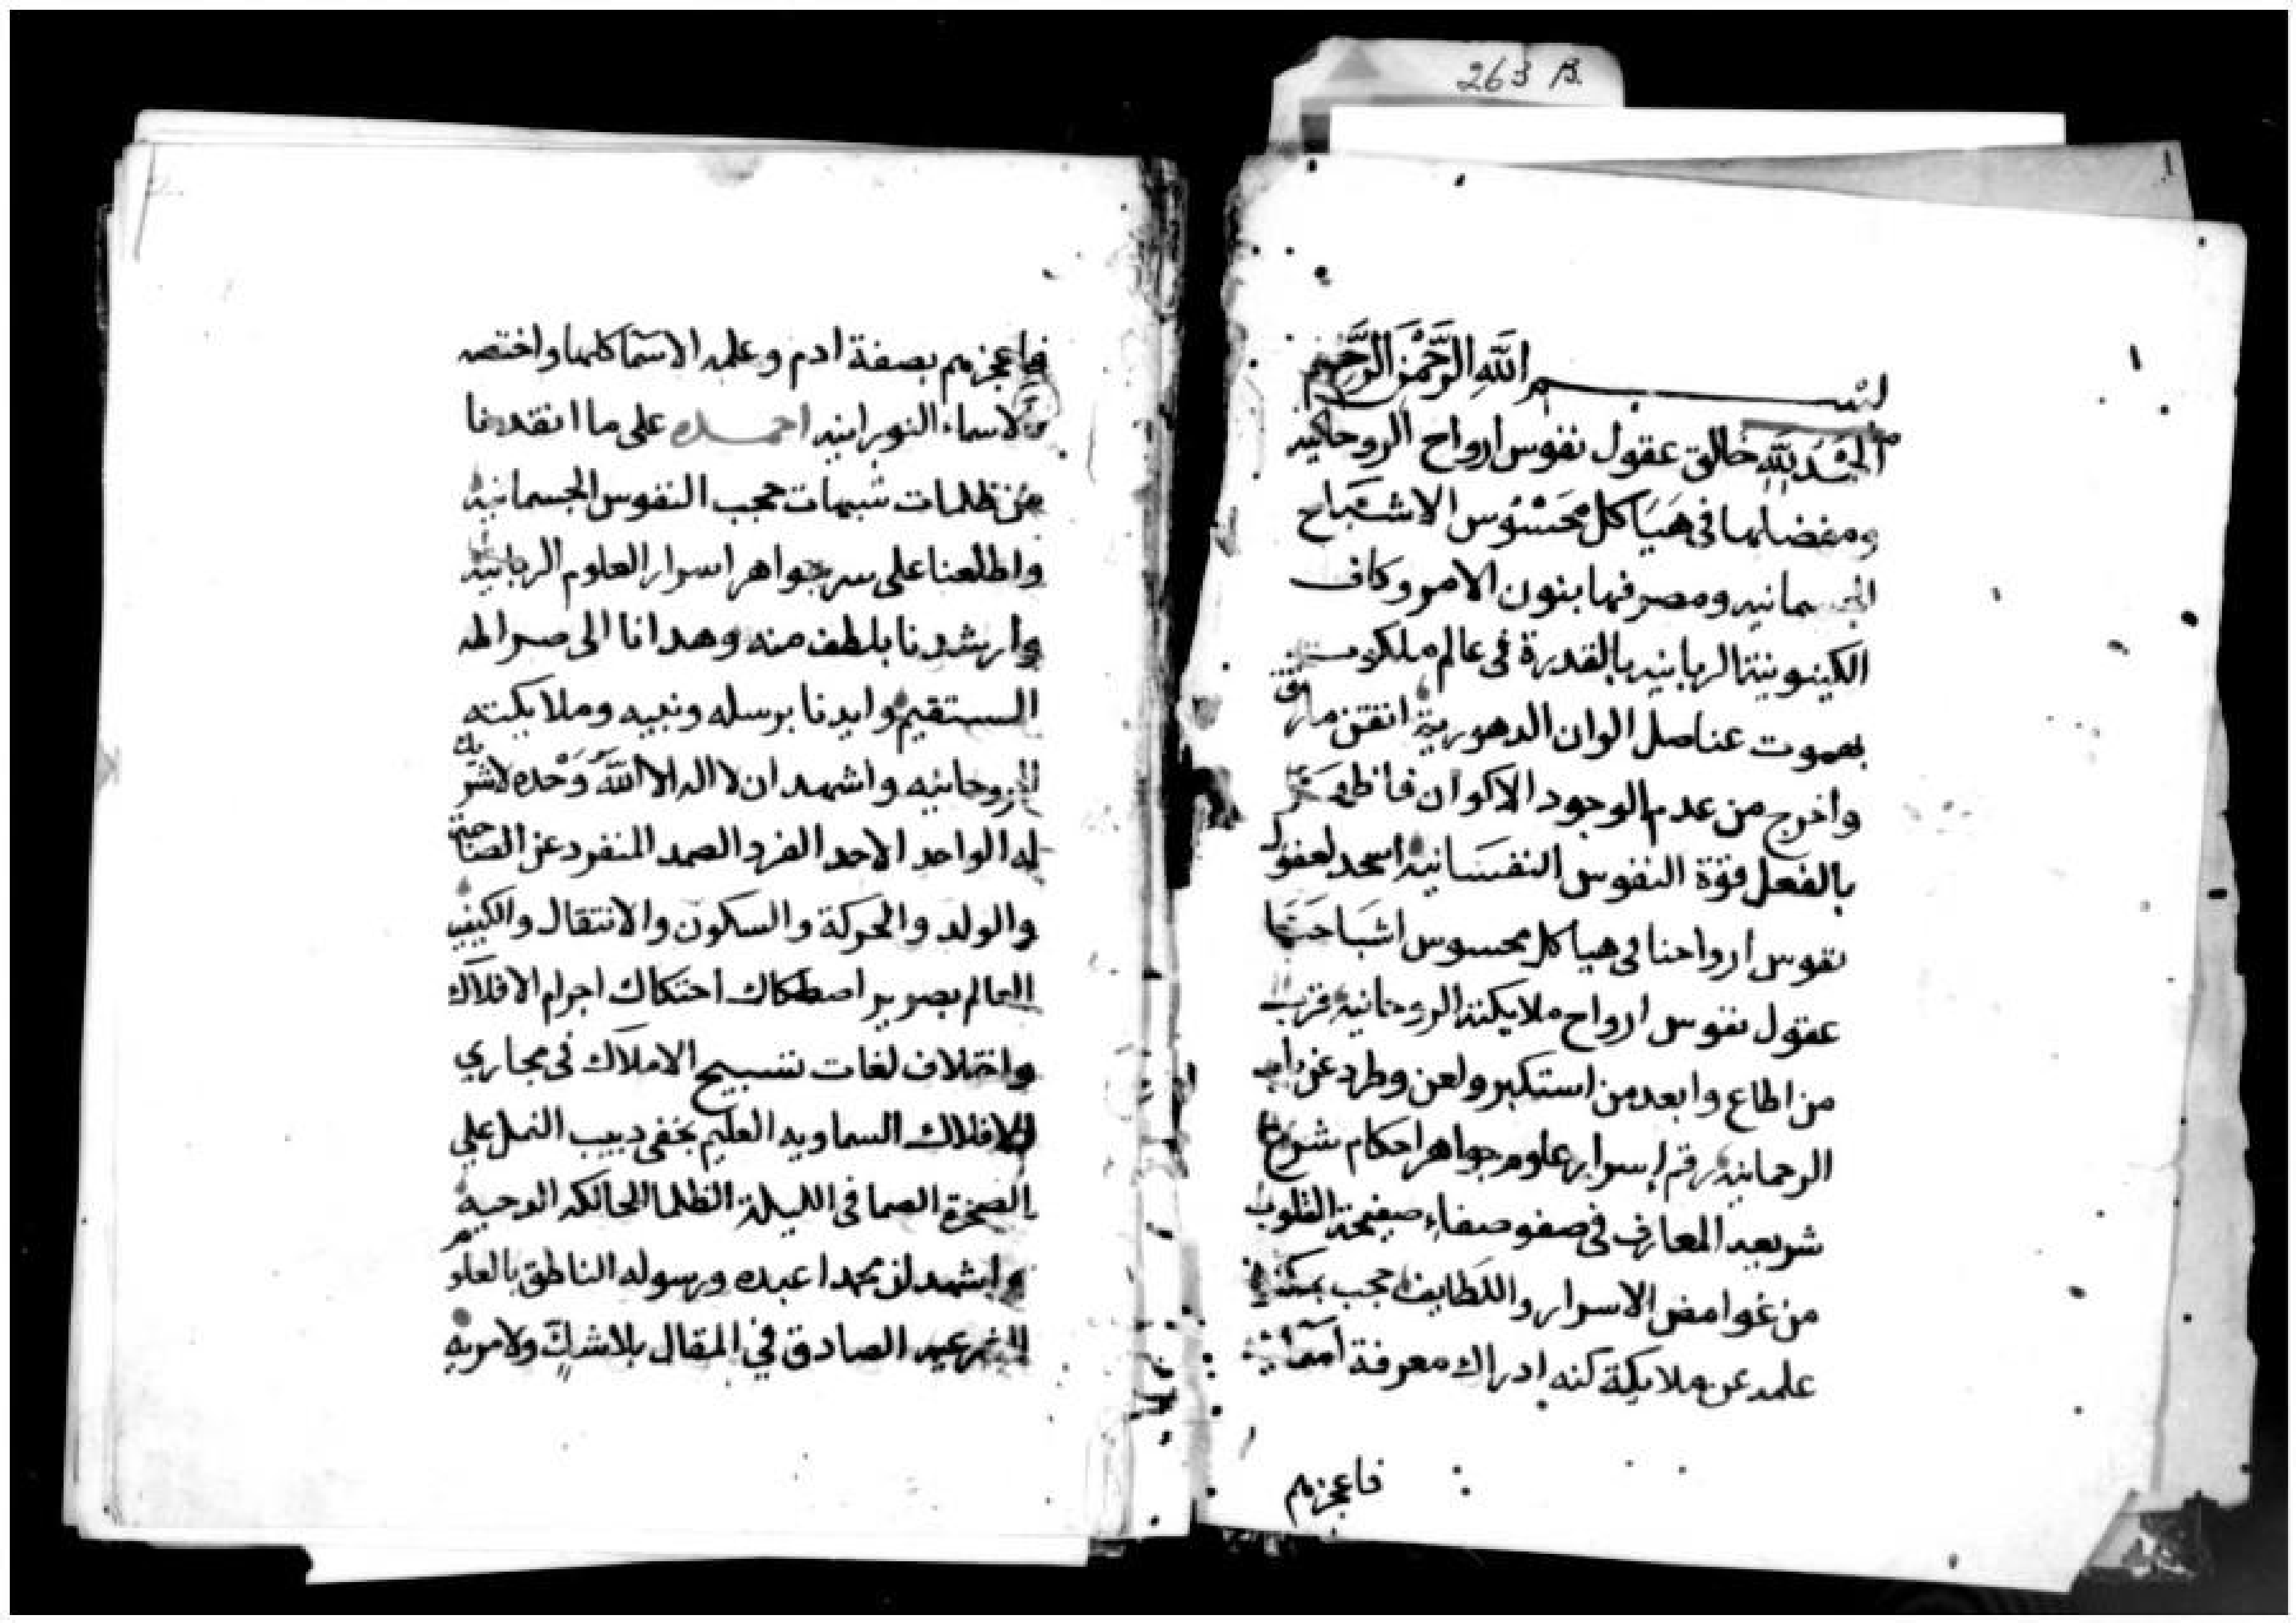 263 B.
1
١
بسم الله الرَّحْمٰن الرَّحِيم
الحمد لله خالق عقول نفوس ارواح الروحانيه
ومفضلها فى هياكل محسوس الاشباح
الجسمانيه ومصرفها بنون الامر وكاف
الكينونية الربانيه بالقدرة فى عالم ملكوت
بعموت عناصل الوان الدهورية اتقن
واخرج من عدم الوجود الاكوان فاظهر
بالفعل قوة النفوس النفسانية اسجد لعقول
نفوس ارواحنا فى هياكل محسوس اشباحنا
عقول نفوس ارواح ملايكته الروحانية قرب
من اطاع وابعد من استكبر ولعن وطرد عن باب
الرحمانية رقم اسرار علوم جواهر احكام
شريعه المعارف فى صفو صفاء صفيحة القلوب
من غوامض الاسرار واللطايف حجب
علمه عن ملايكة كنه ادراك معرفة
فاعجزهم
فاعجزهم بصفة ادم وعلمه الاسما كلها واختصه
بالاسماء النورانيه احمده على ما انقدنا
من ظلمات شبهات حجب النفوس الجسمانية
واطلعنا على سر جواهر اسرار العلوم الربانية
وارشدنا بلطف منه وهدانا الى صراطه
المستقيم وايدنا برسله ونبيه وملايكته
الروحانيه واشهد ان لا اله الا الله وَحْده لا شريك
له الواحد الاحد الفرد الصمد المنفرد عن الصاحبة
والولد والحركة والسكون والانتقال والكيفيه
العالم بصرير اصطكاك احتكاك اجرام الافلاك
واختلاف لغات تسبيح الاملاك فى مجاري
الافلاك السماويه العليم بخفى دبيب النمل علي
الصخرة الصما فى الليلة الظلما الحالكه الدجيه
واشهد ان محمدا عبده ورسوله الناطق بالعلوم
الصادق في المقال بلا شك ولا مريه